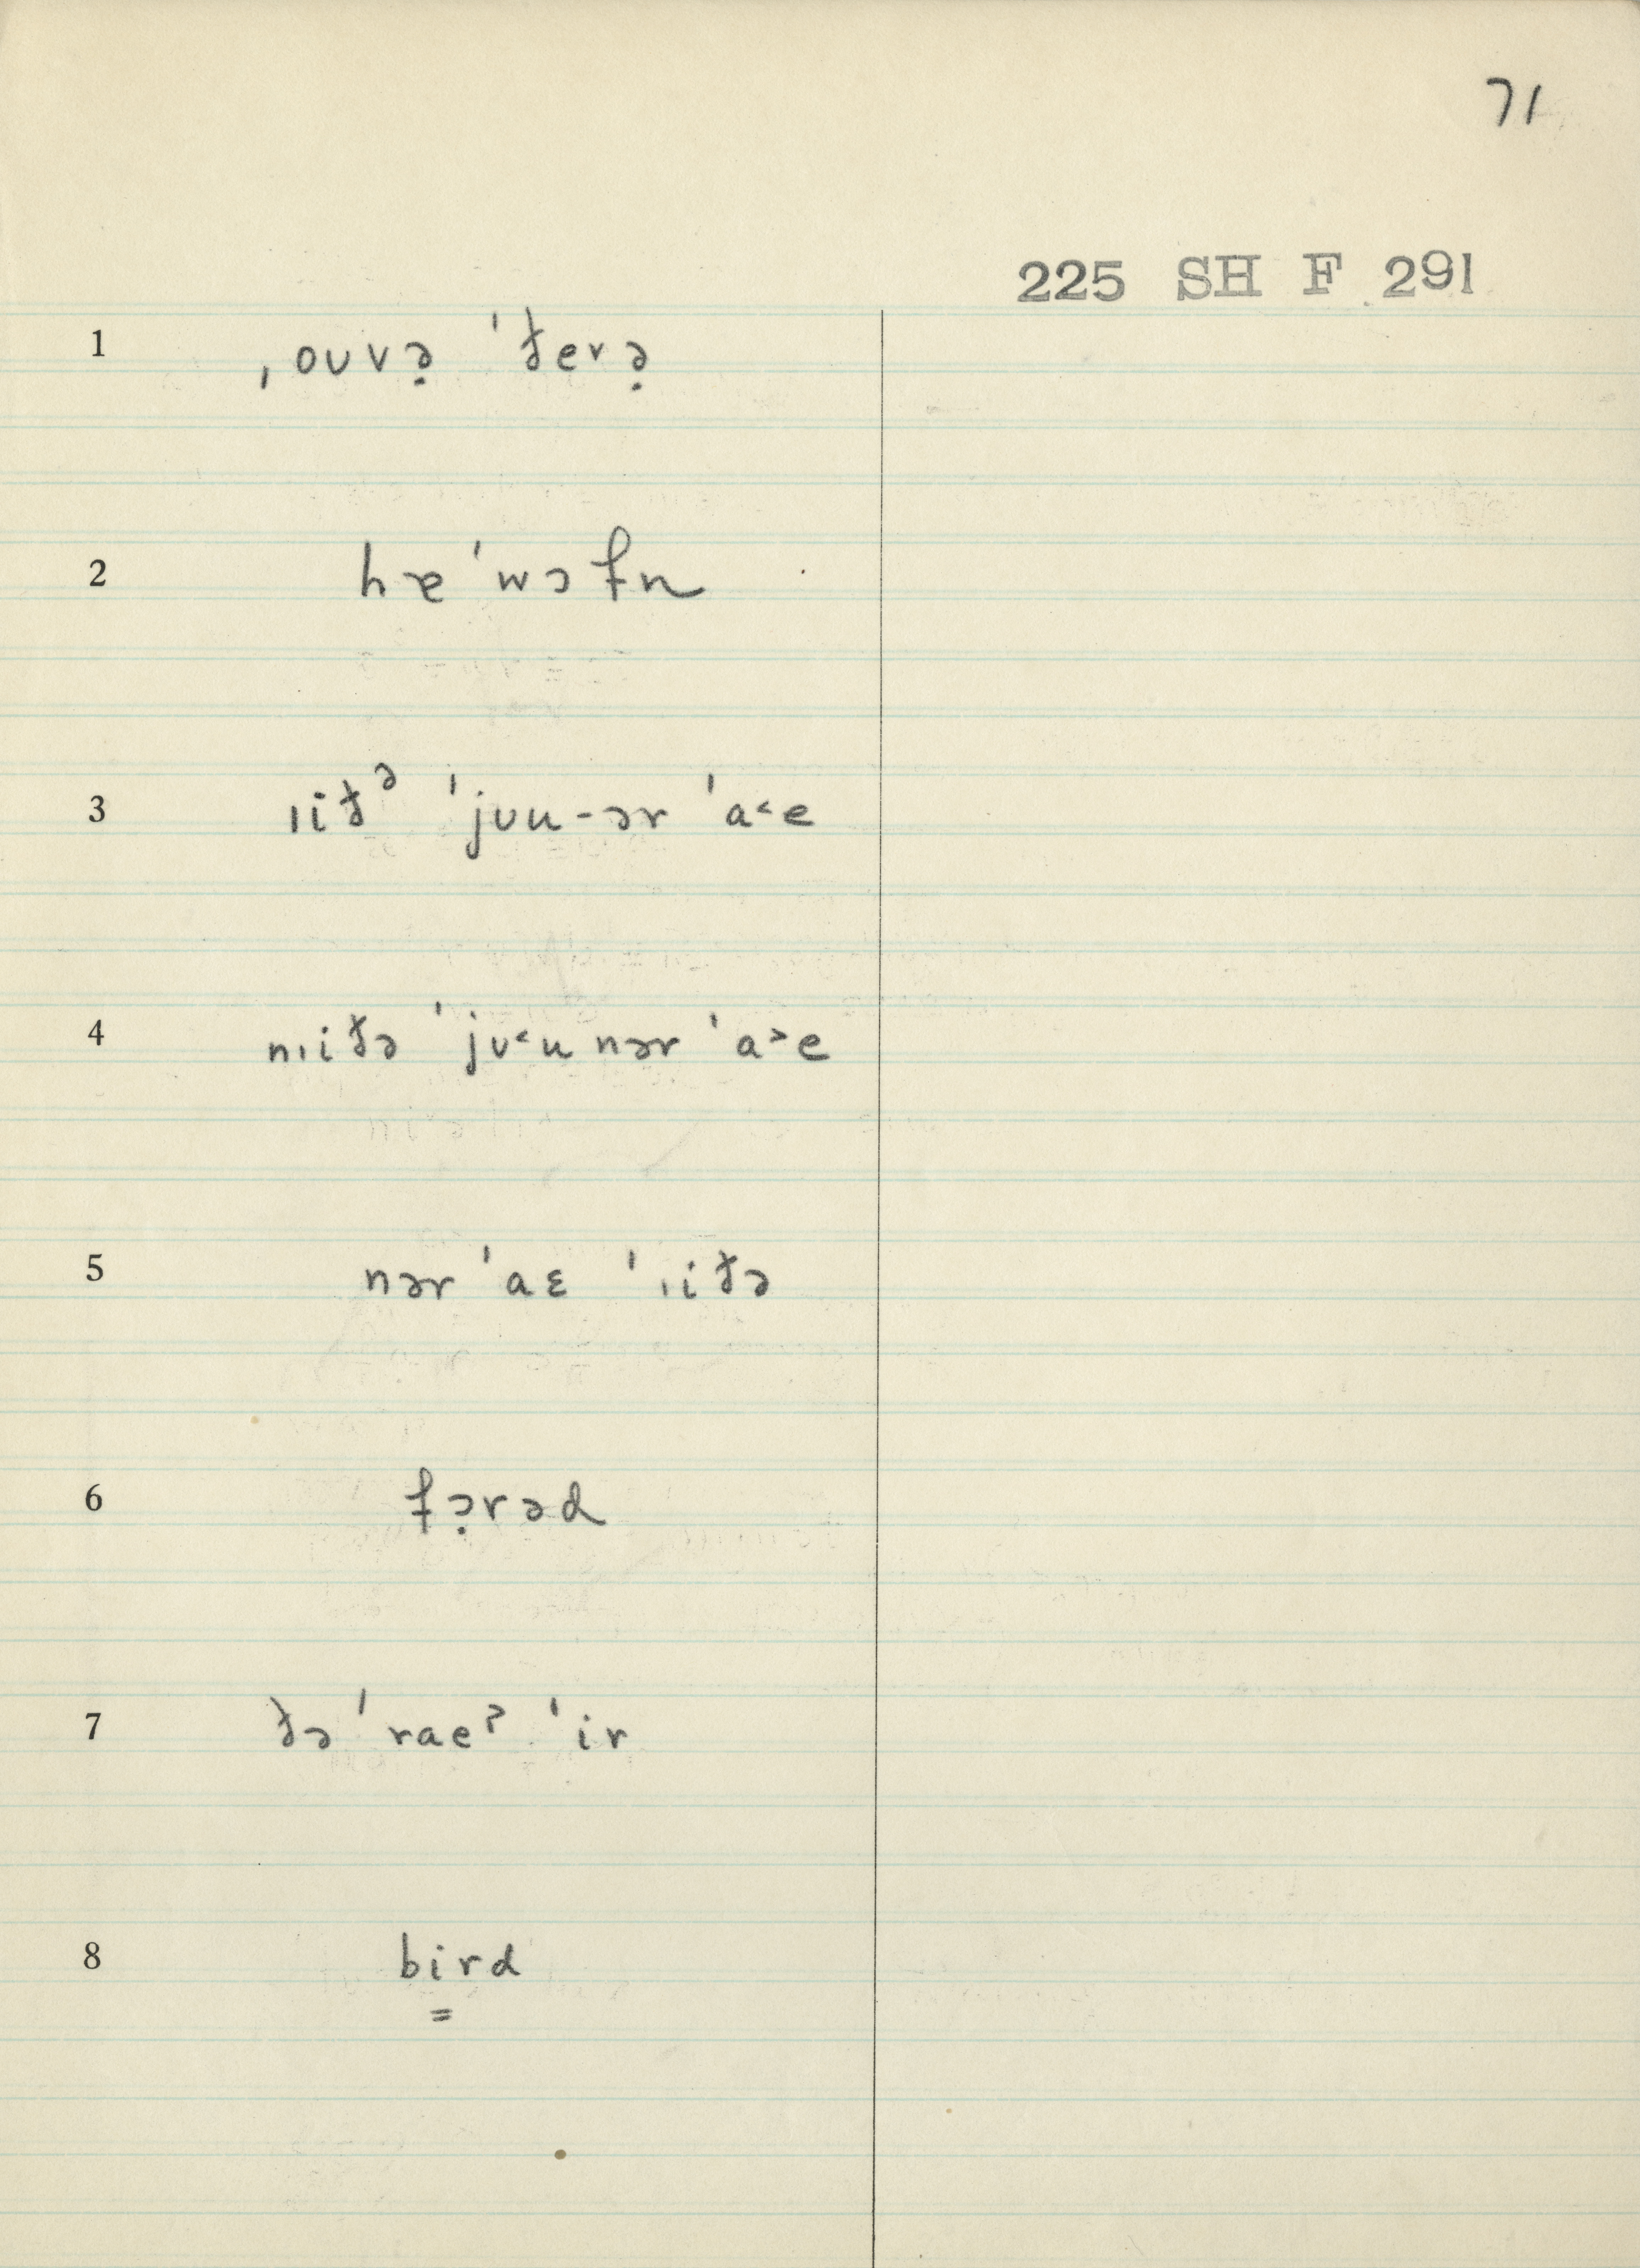 71
225 SH F 291
1 ˌoʊvə̣ ˈðevə̣
2 hɐ ˈwɔfn
3 ɪiðᵊ ˈjʊu-ər ˈa˂e
4 nɪiðə ˈjʊ˂u nər ˈa˃e
5 nər ˈaɛ ˈɪiðə
6 fɔ̣rəd
7 ðə ˈraeˀ ˈir
8 bird
=